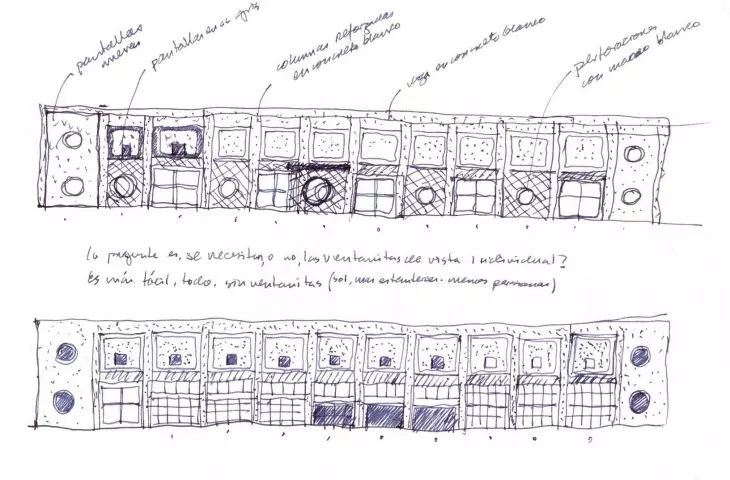 pantallas
nuevas
pantallas a gris
columnas reforzadas
en concreto blanco
viga en concreto blanco
perforaciones
con marco blanco
la pregunta es, se necesitan, o no, las ventanitas de vista individual?
Es más fácil, todo, sin ventanitas (sol, mas estanterias - menos persianas)